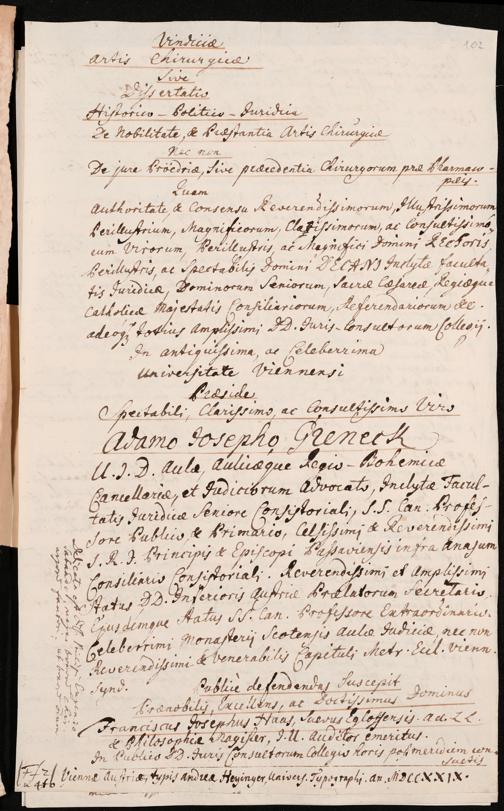 102
Vindiciæ
Artis Chirurgicæ
Sive
Dissertatio
Historico - Politico - Juridica
De Nobilitate, & Præstantia Artis Chirurgicæ
Nec non
De jure Proëdriæ, Sive præcedentia Chirurgorum præ Pharmaco-
pæis.
Quam
Authoritate, & Consensu Reverendissimorum, Illustrissimorum
Perillustrium, Magnificorum, Clarissimorum, ac Consultissimo
rum Virorum, Perillustris, ac Magnifici Domini RECTORIS
Perillustris, ac Spectabilis Domini DECANI Inclytæ faculta
tis Juridicæ, Dominorum Seniorum, Sacræ Cæsareæ, Regiæque
Catholicæ Majestatis Consiliariorum, Referendariorum &c.
adeoq; totius amplissimi DD. Juris Consultorum Collegij.
In antiquissima, ac Celeberrima
Universitate Viennensi
Præside
Spectabili, Clarissimo, ac Consultissimo Viro
Adamo Josepho Greneck
U. J. D. Aulæ, Aulicæque Regio - Bohemicæ
Cancellariæ, et Judiciorum Advocato, Inclytæ Facul-
tatis Juridicæ Seniore Consistoriali, S.S. Can. Profes-
sore Publico & Primario, Celsissimi & Reverendissimi
S. R. I. Principis & Episcopi Passaviensis infra Anasum
Consiliario Consistoriali. Reverendissimi et Amplissimi
Status DD. Inferioris Austriæ Prælatorum Secretario.
Ejusdemque Status SS. Can. Professore Extraordinario.
Celeberrimi Monasterij Scotensis Aulæ Judice, nec non
Reverendissimi & Venerabilis Capituli Metr. Eccl. Vienn.
Synd.
Publice defendendas Suscepit
Prænobilis, Excellens, ac Doctissimus Dominus
Franciscus Josephus Haas, Suevus Eglofsensis. AA. LL.
& Philosophiæ Magister, J. U. Auditor emeritus.
In Publico DD. Juris Consultorum Collegio horis pomeridianis con
suetis
Viennæ Austriæ, typis Andreæ Heyinger, Univers. Typographi. an. MDCCXXIX.